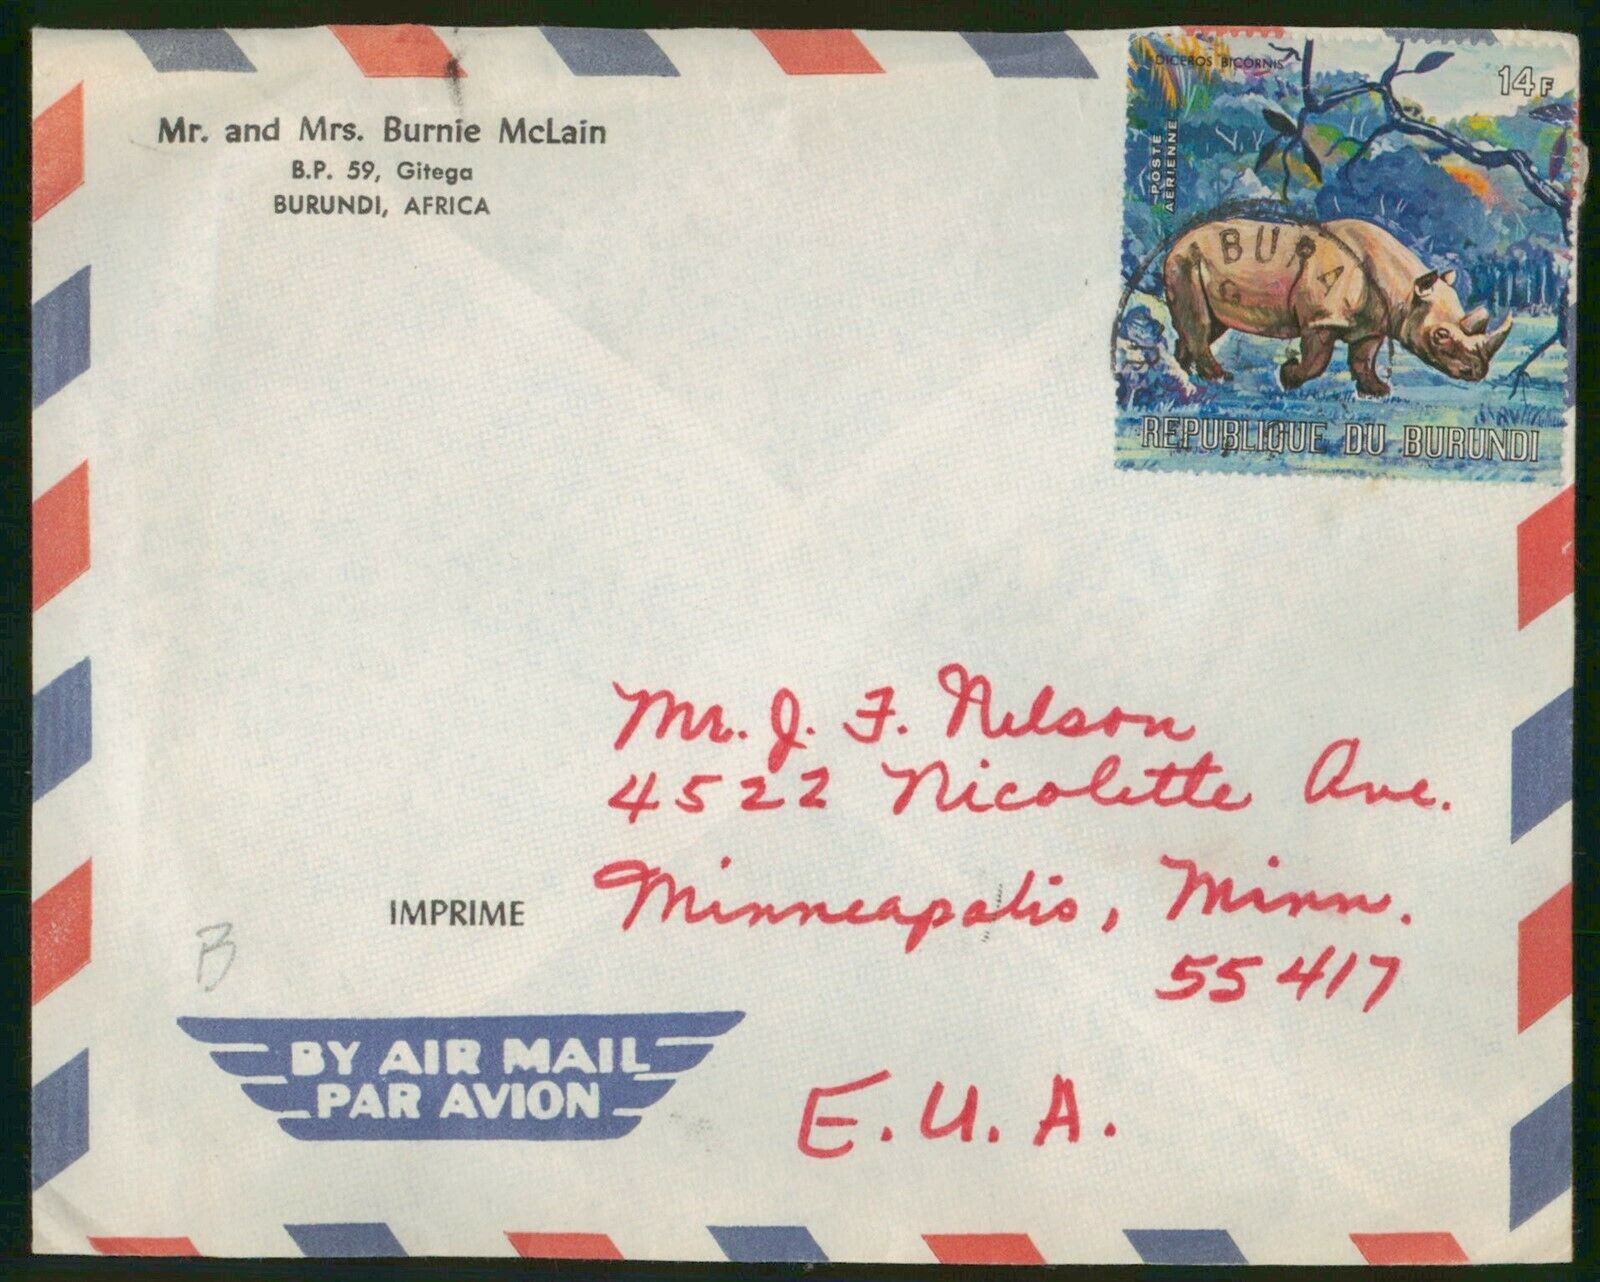 Mr. and Mrs. Burnie McLain
B.P. 59, Gitega
BURUNDI, AFRICA
DICEROS BICORNIS
14F
POSTE
AERIENNE
BURA
REPUBLIQUE DU BURUNDI
Mr. J. F. Nelson
4522 Nicolette Ave.
Minneapolis, Minn.
55417
E.U.A.
IMPRIME
B
BY AIR MAIL
PAR AVION